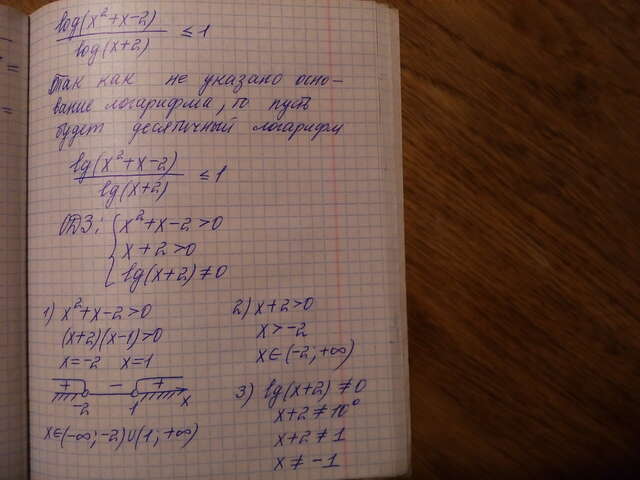 log(x²+x-2)
log(x+2) ≤ 1
Так как не указано осно-
вание логарифма, то пусть
будет десятичный логарифм
lg(x²+x-2)
lg(x+2) ≤ 1
ОДЗ: { x²+x-2>0
x+2>0
lg(x+2)≠0
1) x²+x-2>0
(x+2)(x-1)>0
x=-2 x=1
+ - +
-2 1 x
x∈(-∞;-2)∪(1;+∞)
2) x+2>0
x>-2
x∈(-2;+∞)
3) lg(x+2)≠0
x+2≠10⁰
x+2≠1
x≠-1